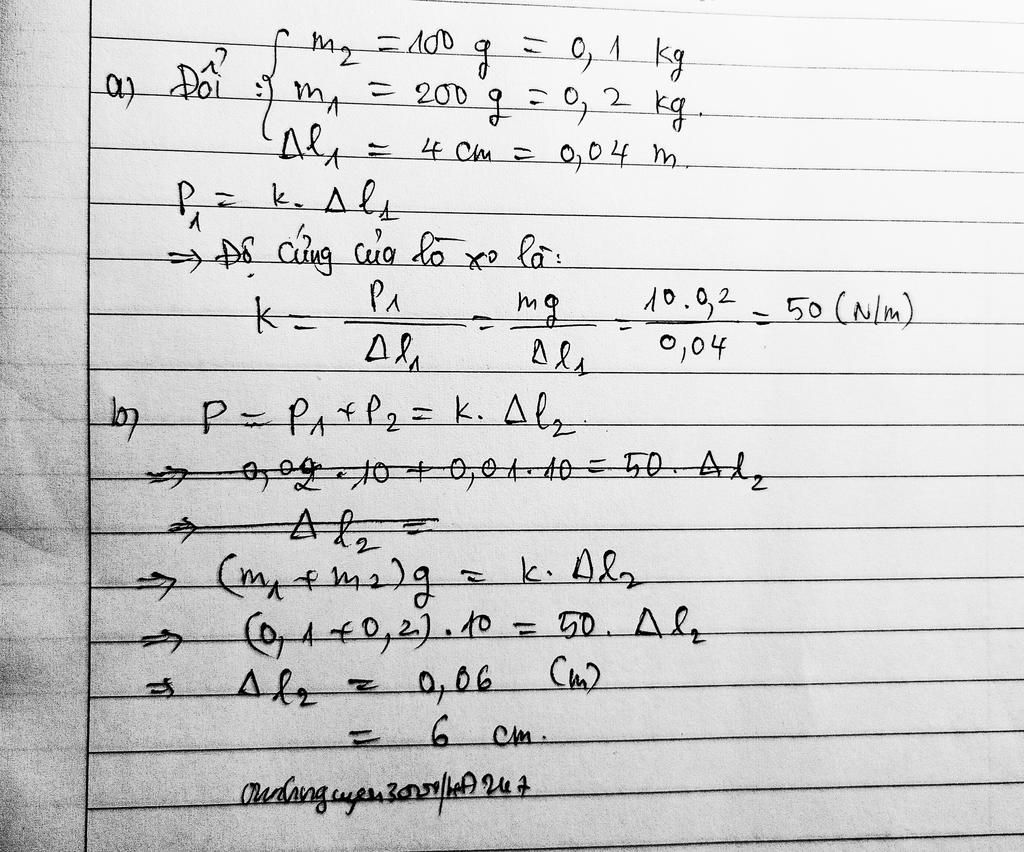 m₂ = 100 g = 0,1 kg
a) Đổi : { m₁ = 200 g = 0,2 kg.
Δl₁ = 4 cm = 0,04 m.
P₁ = k. Δl₁
⇒ Độ cứng của lò xo là:
k = P₁/Δl₁ = mg/Δl₁ = 10.0,2/0,04 = 50 (N/m)
b) P = P₁ + P₂ = k. Δl₂.
⇒ 0,02.10 + 0,01.10 = 50. Δl₂
⇒ Δl₂ =
⇒ (m₁ + m₂)g = k. Δl₂
⇒ (0,1 + 0,2).10 = 50. Δl₂
⇒ Δl₂ = 0,06 (m)
= 6 cm.